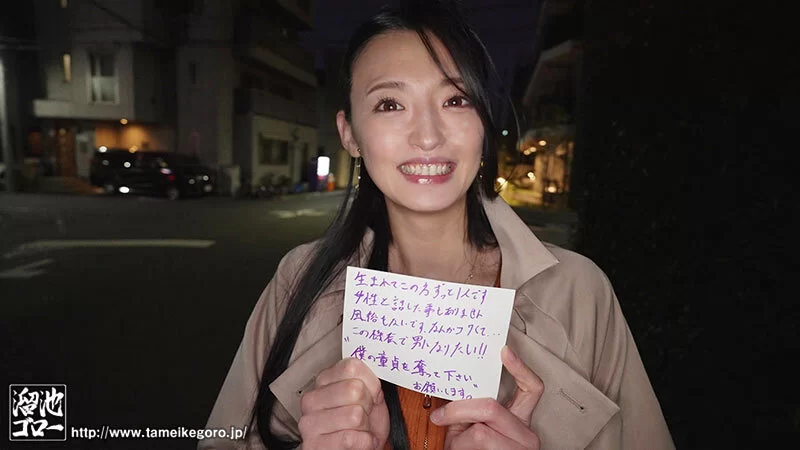 生まれてこの方ずっと1人です
女性と話した事もありません
風俗もないです。なんかコワくて..
この機会で男になりたい!!
"僕の童貞を奪って下さい"
お願いします。
溜池
ゴロー
http://www.tameikegoro.jp/